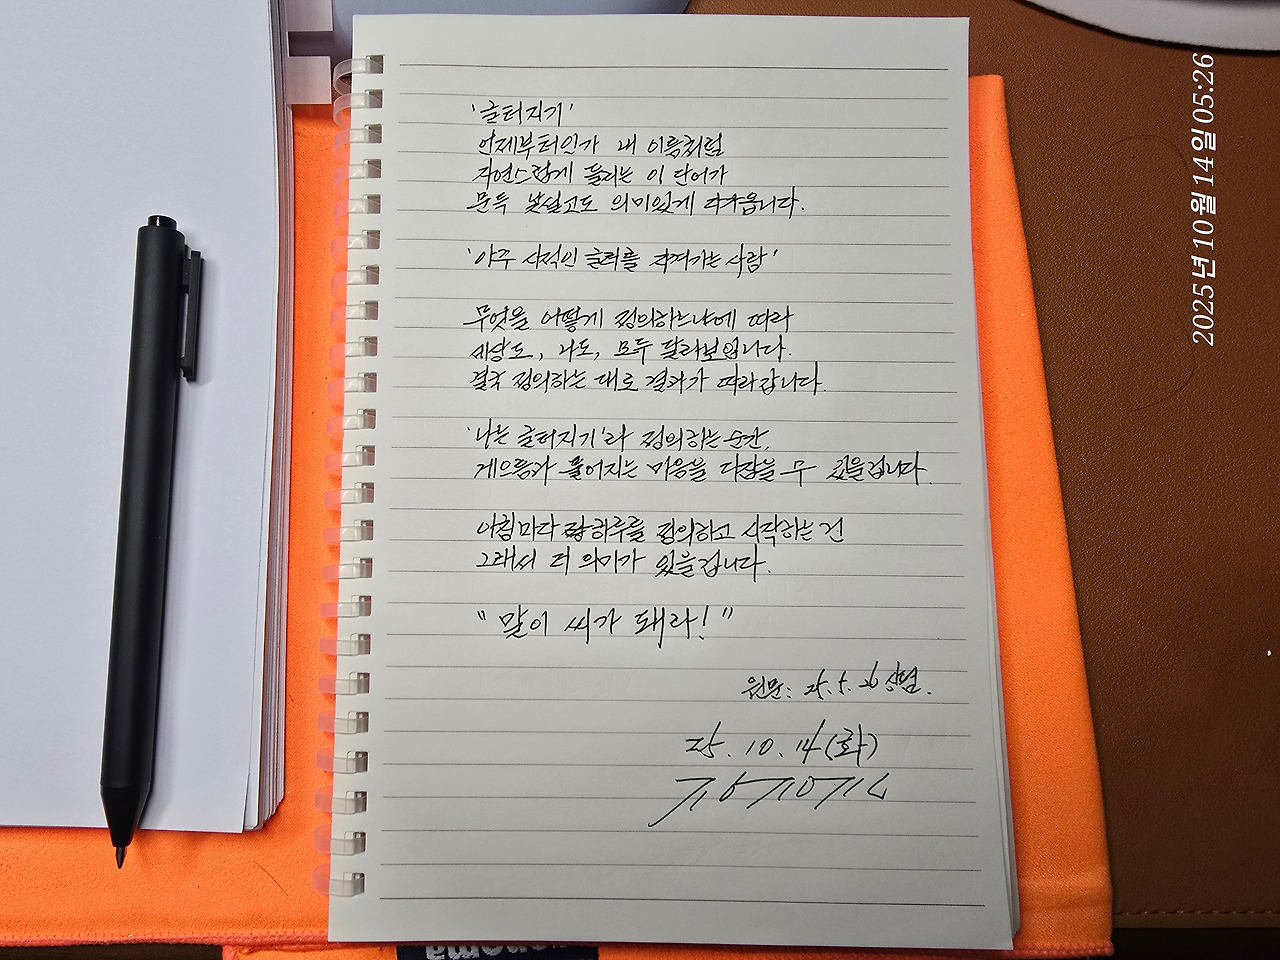 '글터지기'
언제부터인가 내 이름처럼
자연스럽게 들리는 이 단어가
문득 낯설고도 의미있게 다가옵니다.
'아주 사적인 글터를 지켜가는 사람'
무엇을 어떻게 정의하느냐에 따라
세상도, 나도, 모두 달라보입니다.
결국 정의하는 대로 결과가 따라갑니다.
'나는 글터지기'라 정의하는 순간,
게으름과 풀어지는 마음을 다잡을 수 있을겁니다.
아침마다 하루를 정의하고 시작하는 건
그래서 더 의미가 있을겁니다.
"말이 씨가 돼라!"
원문: 25.5.26
25.10.14(화)
2025년 10월 14일 05:26